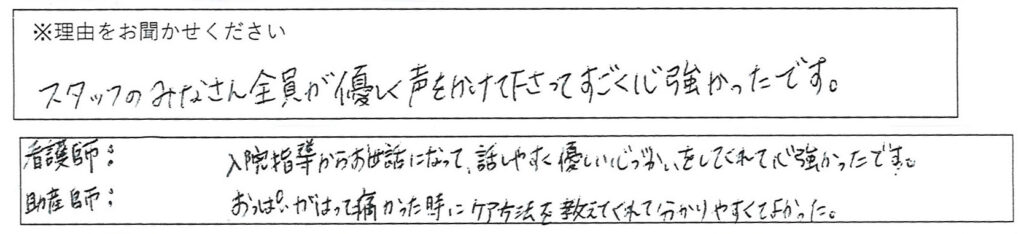 ※理由をお聞かせください
スタッフのみなさん全員が優しく声をかけて下さってすごく心強かったです。
看護師： 入院指導からお世話になって、話しやすく優しい心づかいをしてくれて心強かったです。
助産師： おっぱいがはって痛かった時にケア方法を教えてくれて分かりやすくてよかった。